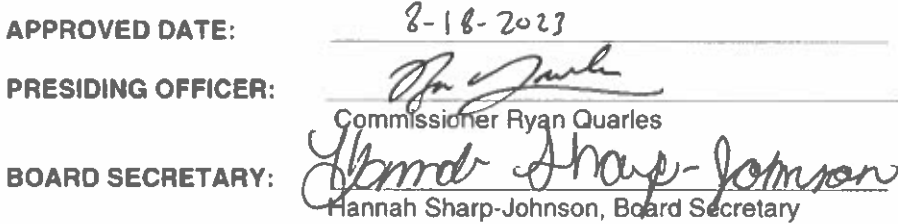 APPROVED DATE: 8-18-2023
PRESIDING OFFICER: Ryan Quarles
Commissioner Ryan Quarles
BOARD SECRETARY: Hannah Sharp-Johnson
Hannah Sharp-Johnson, Board Secretary